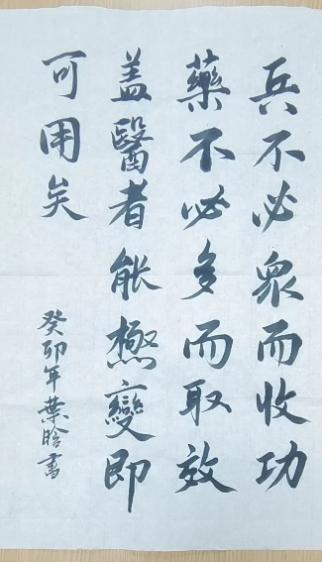 兵不必衆而收功
藥不必多而取效
盖醫者能極變即
可用矣
癸卯年葉晗書